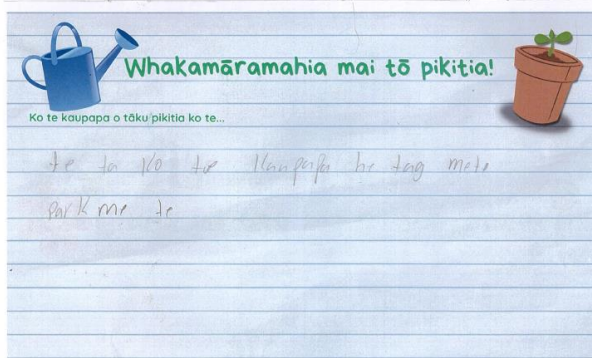 Whakamāramahia mai tō pikitia!
Ko te kaupapa o tāku pikitia ko te...
te ta ko te kaupapa he tag mete
park me te